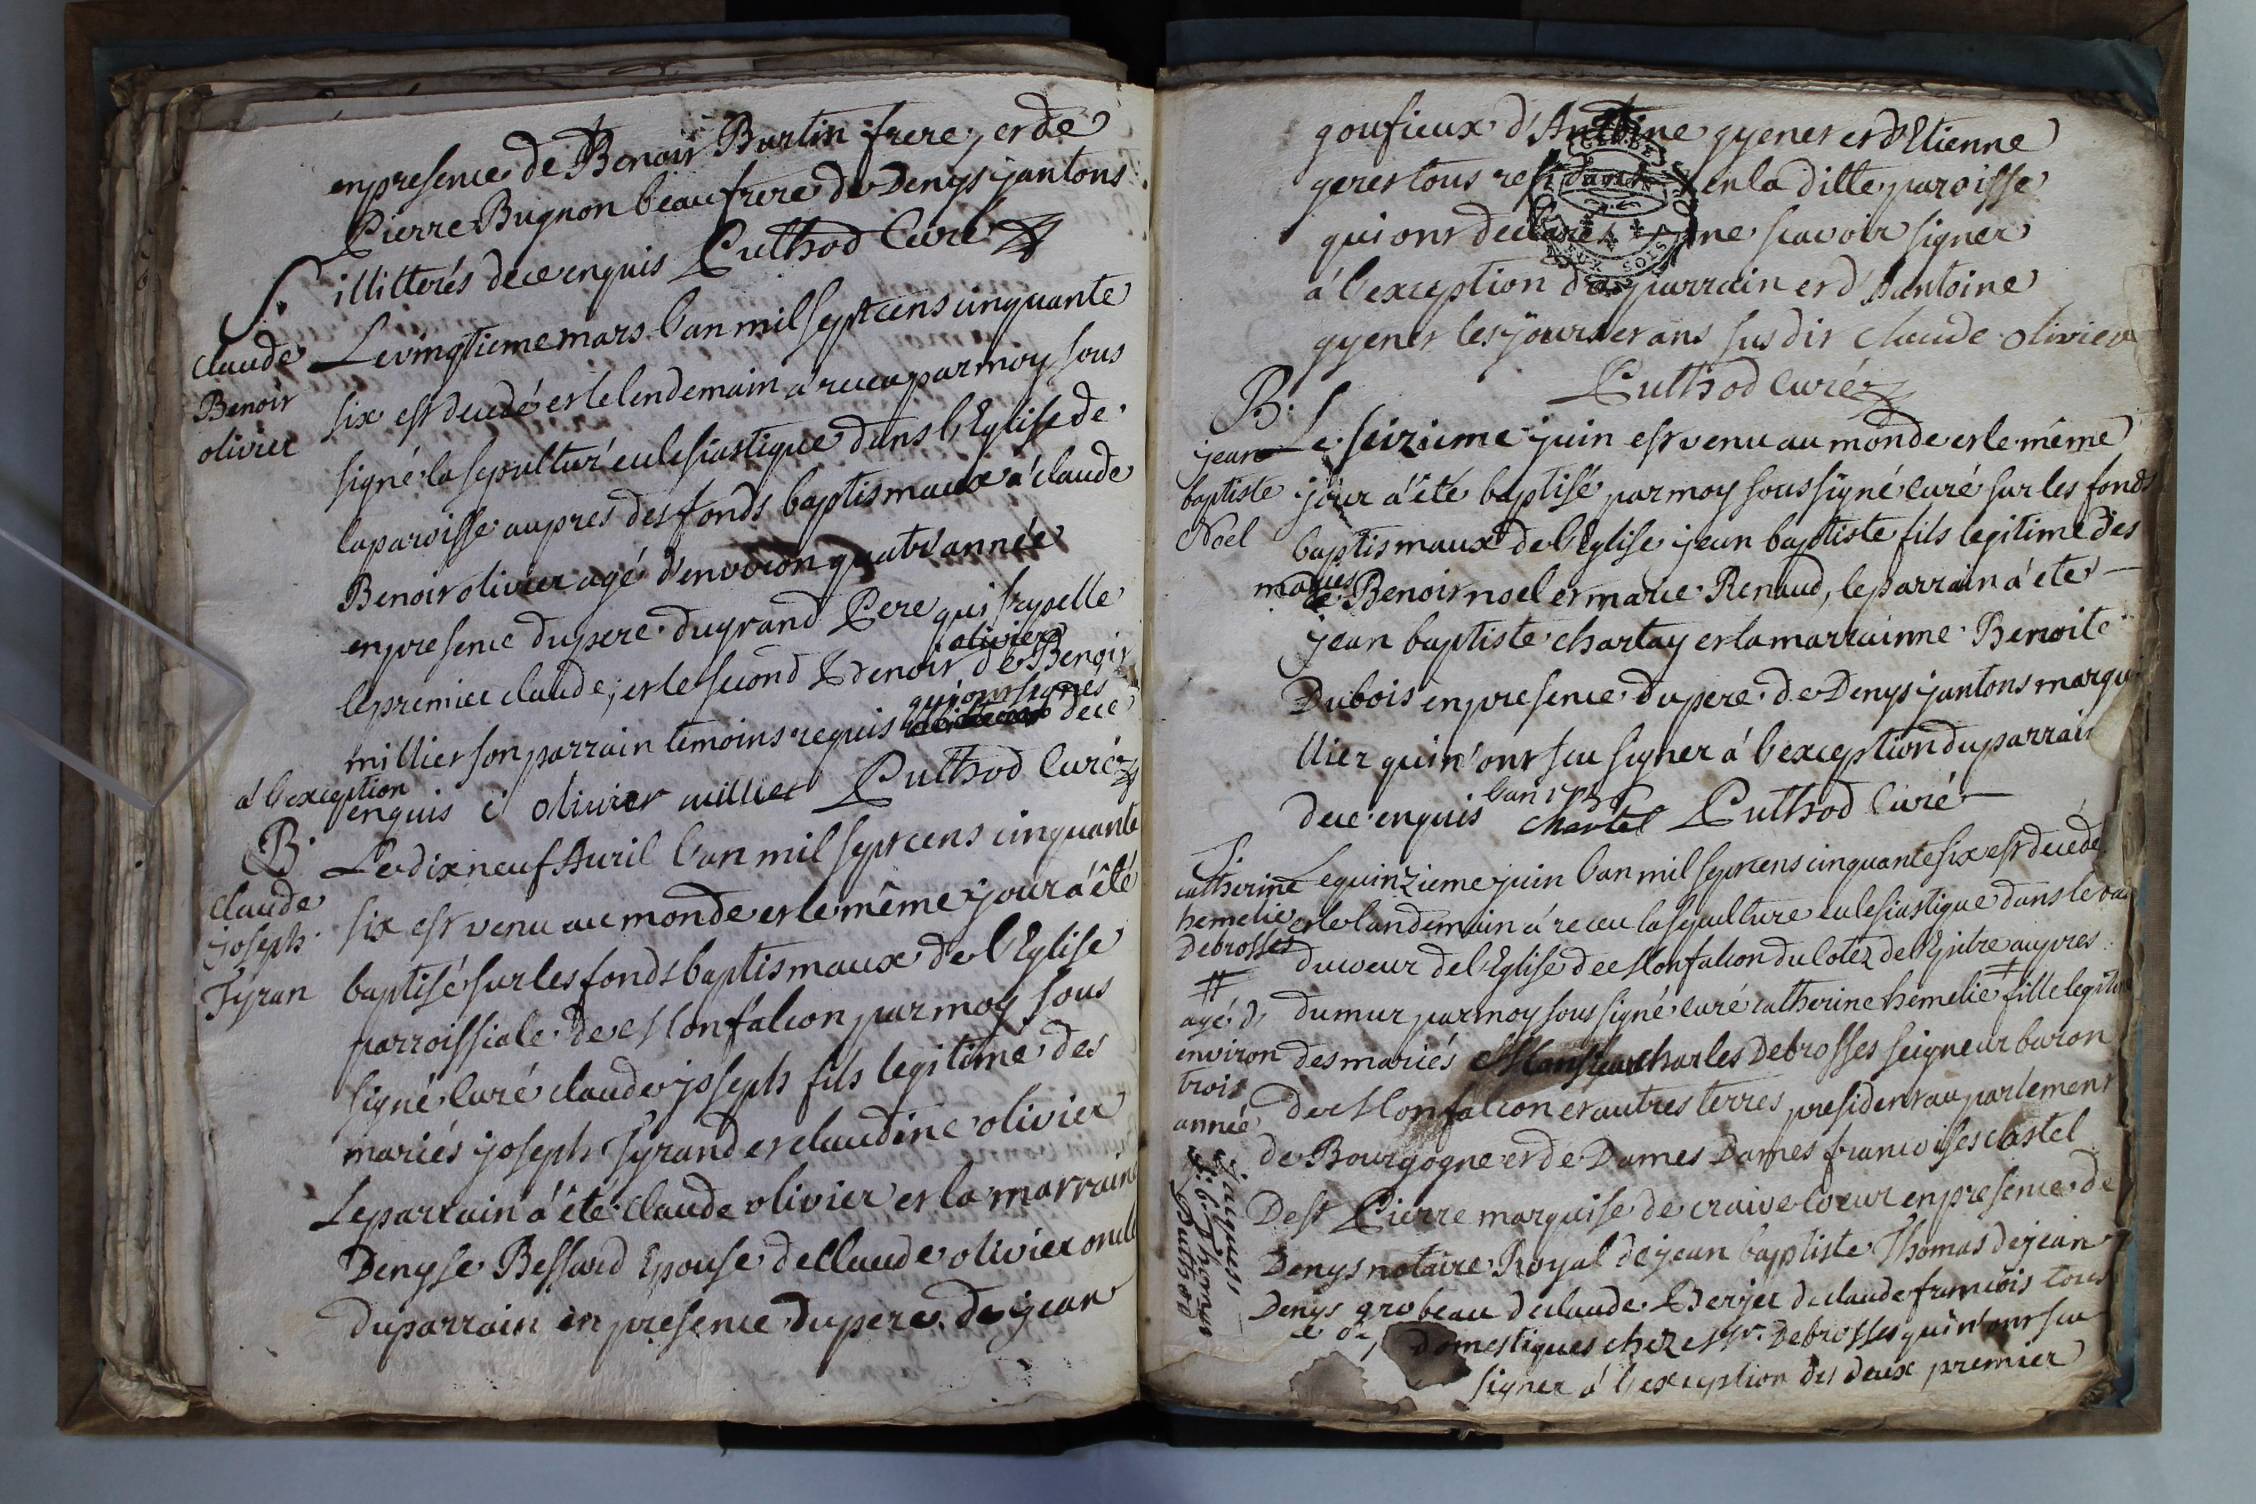 en presence de Benoit Burtin frere, et de
Pierre Bugnon beaufrere de Denys jantons
illitterés de ce enquis Puthod Curé
S.
Claude
Benoit
olivier
Le vingtieme mars l'an mil sept cens cinquante
six est decedé et le lendemain a receu par moy sous
signé la sepultur ecclesiastique dans l'Eglise de
la paroisse aupres des fonds baptismaux a claude
Benoit olivier agé d'environ quatr'année
en presence du pere du grand Pere qui s'appelle
le premier claude, et le second Benoit olivier de Benoit
millier son parrain temoins requis qui ont signés de ce
enquis a l'exception olivier millier Puthod Curé
B.
Claude
joseph
Tyran
Le dix neuf Avril l'an mil sept cens cinquante
six est venu au monde et le même jour a êté
baptisé sur les fonds baptismaux de l'Eglise
parroissiale de Monfalcon par moy sous
signé Curé claude joseph fils legitime des
mariés joseph Tyrand et claudine olivier
Le parrain a êté claude olivier et la marraine
Denyse Bessard Epouse de Claude olivier oncle
du parrain en presence du pere de jean
goufieux d'Antoine gyenet et d'Etienne
geres tous en la ditte paroisse
qui ont declaré ne scavoir signer
a l'exception du parrain et d'Antoine
gyenet les jour et ans susdit claude olivier
Puthod Curé
B.
jean
baptiste
Noel
Le seizieme juin est venu au monde et le même
jour a été baptisé par moy soussigné curé sur les fonds
baptismaux de l'Eglise jean baptiste fils legitime des
mariés Benoit noel et marie Renaud, le parrain a eté
jean baptiste chartay et la marrainne Benoite
Dubois en presence du pere de Denys jantons margui
llier qui n'ont scu signer a l'exception du parrain
de ce enquis l'an 1756 chartel Puthod Curé
S.
catherine
hemelie
Debrosses
#
agé d
environ
trois
année
Le quinzieme juin l'an mil sept cens cinquante six est decedé
et le landemain a receu la sepulture eclesiastique dans le bas
du coeur de l'Eglise de Monfalcon du cotez de l'Epitre aupres
du mur par moy sous signé curé catherine hemelie # fille legitime
des mariés Monsieur charles Debrosses seigneur baron
de Monfalcon et autres terres president au parlement
de Bourgogne et de Dames Dames francoises castel
De st Pierre marquise de craive coeur en presence de
Denys notaire Royal de jean baptiste Thomas de jean
Denys grobeau de claude Berjer de claude francois tous
domestiques chez Mr. Debrosses qui n'ont scu
signer a l'exception des deux premier
jaques
j. b. Thomas
Puthod